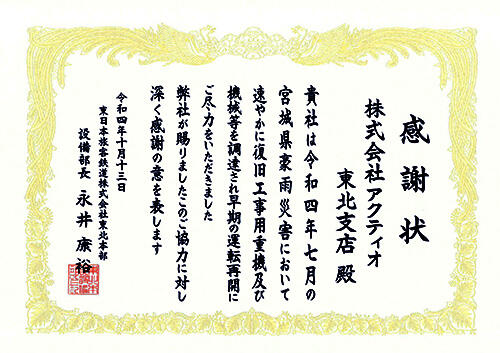 感謝状
株式会社 アクティオ
東北支店 殿
貴社は令和四年七月の
宮城県豪雨災害において
速やかに復旧工事用重機及び
機械等を調達され早期の運転再開に
ご尽力をいただきました
弊社が賜りましたこのご協力に対し
深く感謝の意を表します
令和四年十月十三日
東日本旅客鉄道株式会社東北本部
設備部長 永井 康裕